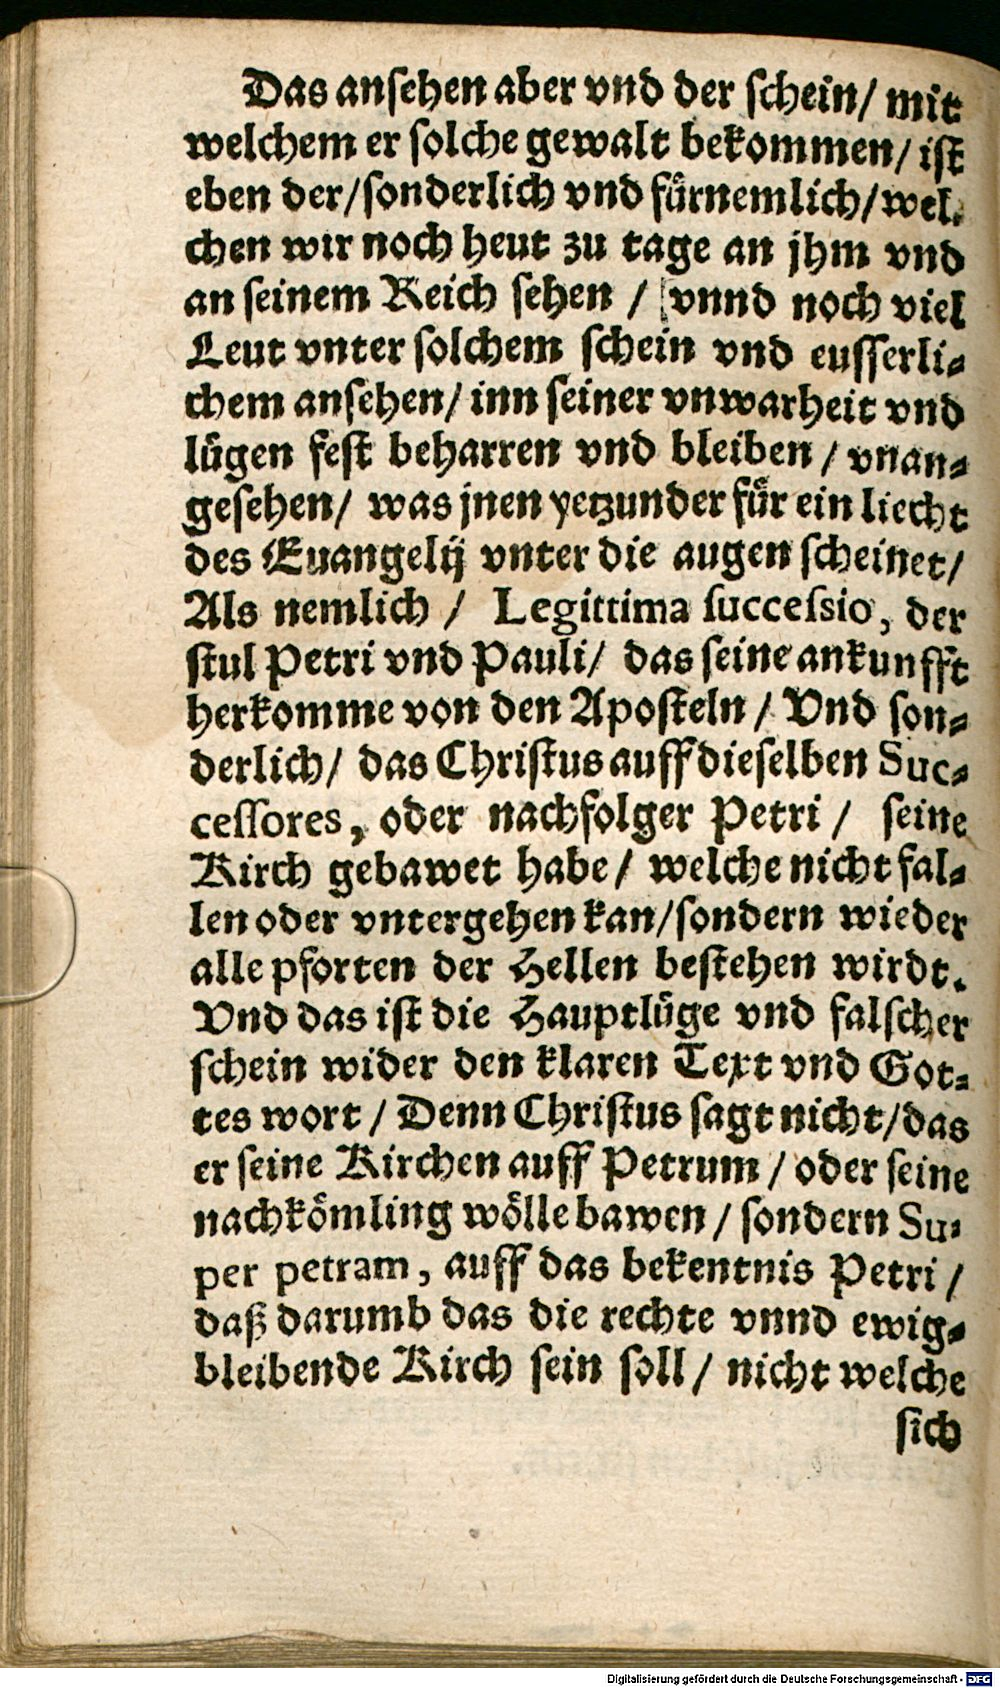 Das ansehen aber vnd der schein/ mit
welchem er solche gewalt bekommen/ ist
eben der/sonderlich vnd fürnemlich/wel-
chen wir noch heut zu tage an jhm vnd
an seinem Reich sehen / vnnd noch viel
Leut vnter solchem schein vnd eusserli-
chem ansehen/ inn seiner vnwarheit vnd
lügen fest beharren vnd bleiben / vnan-
gesehen/ was jnen yetzunder für ein liecht
des Euangelij vnter die augen scheinet/
Als nemlich / Legittima successio, der
stul Petri vnd Pauli/ das seine ankunfft
herkomme von den Aposteln / Vnd son-
derlich/ das Christus auff dieselben Suc-
cessores, oder nachfolger Petri / seine
Kirch gebawet habe/ welche nicht fal-
len oder vntergehen kan/sondern wieder
alle pforten der Hellen bestehen wirdt.
Vnd das ist die Hauptlüge vnd falscher
schein wider den klaren Text vnd Got-
tes wort / Denn Christus sagt nicht/das
er seine Kirchen auff Petrum / oder seine
nachkömling wölle bawen / sondern Su-
per petram, auff das bekentnis Petri /
daß darumb das die rechte vnnd ewig-
bleibende Kirch sein soll/ nicht welche
sich
Digitalisierung gefördert durch die Deutsche Forschungsgemeinschaft - DFG